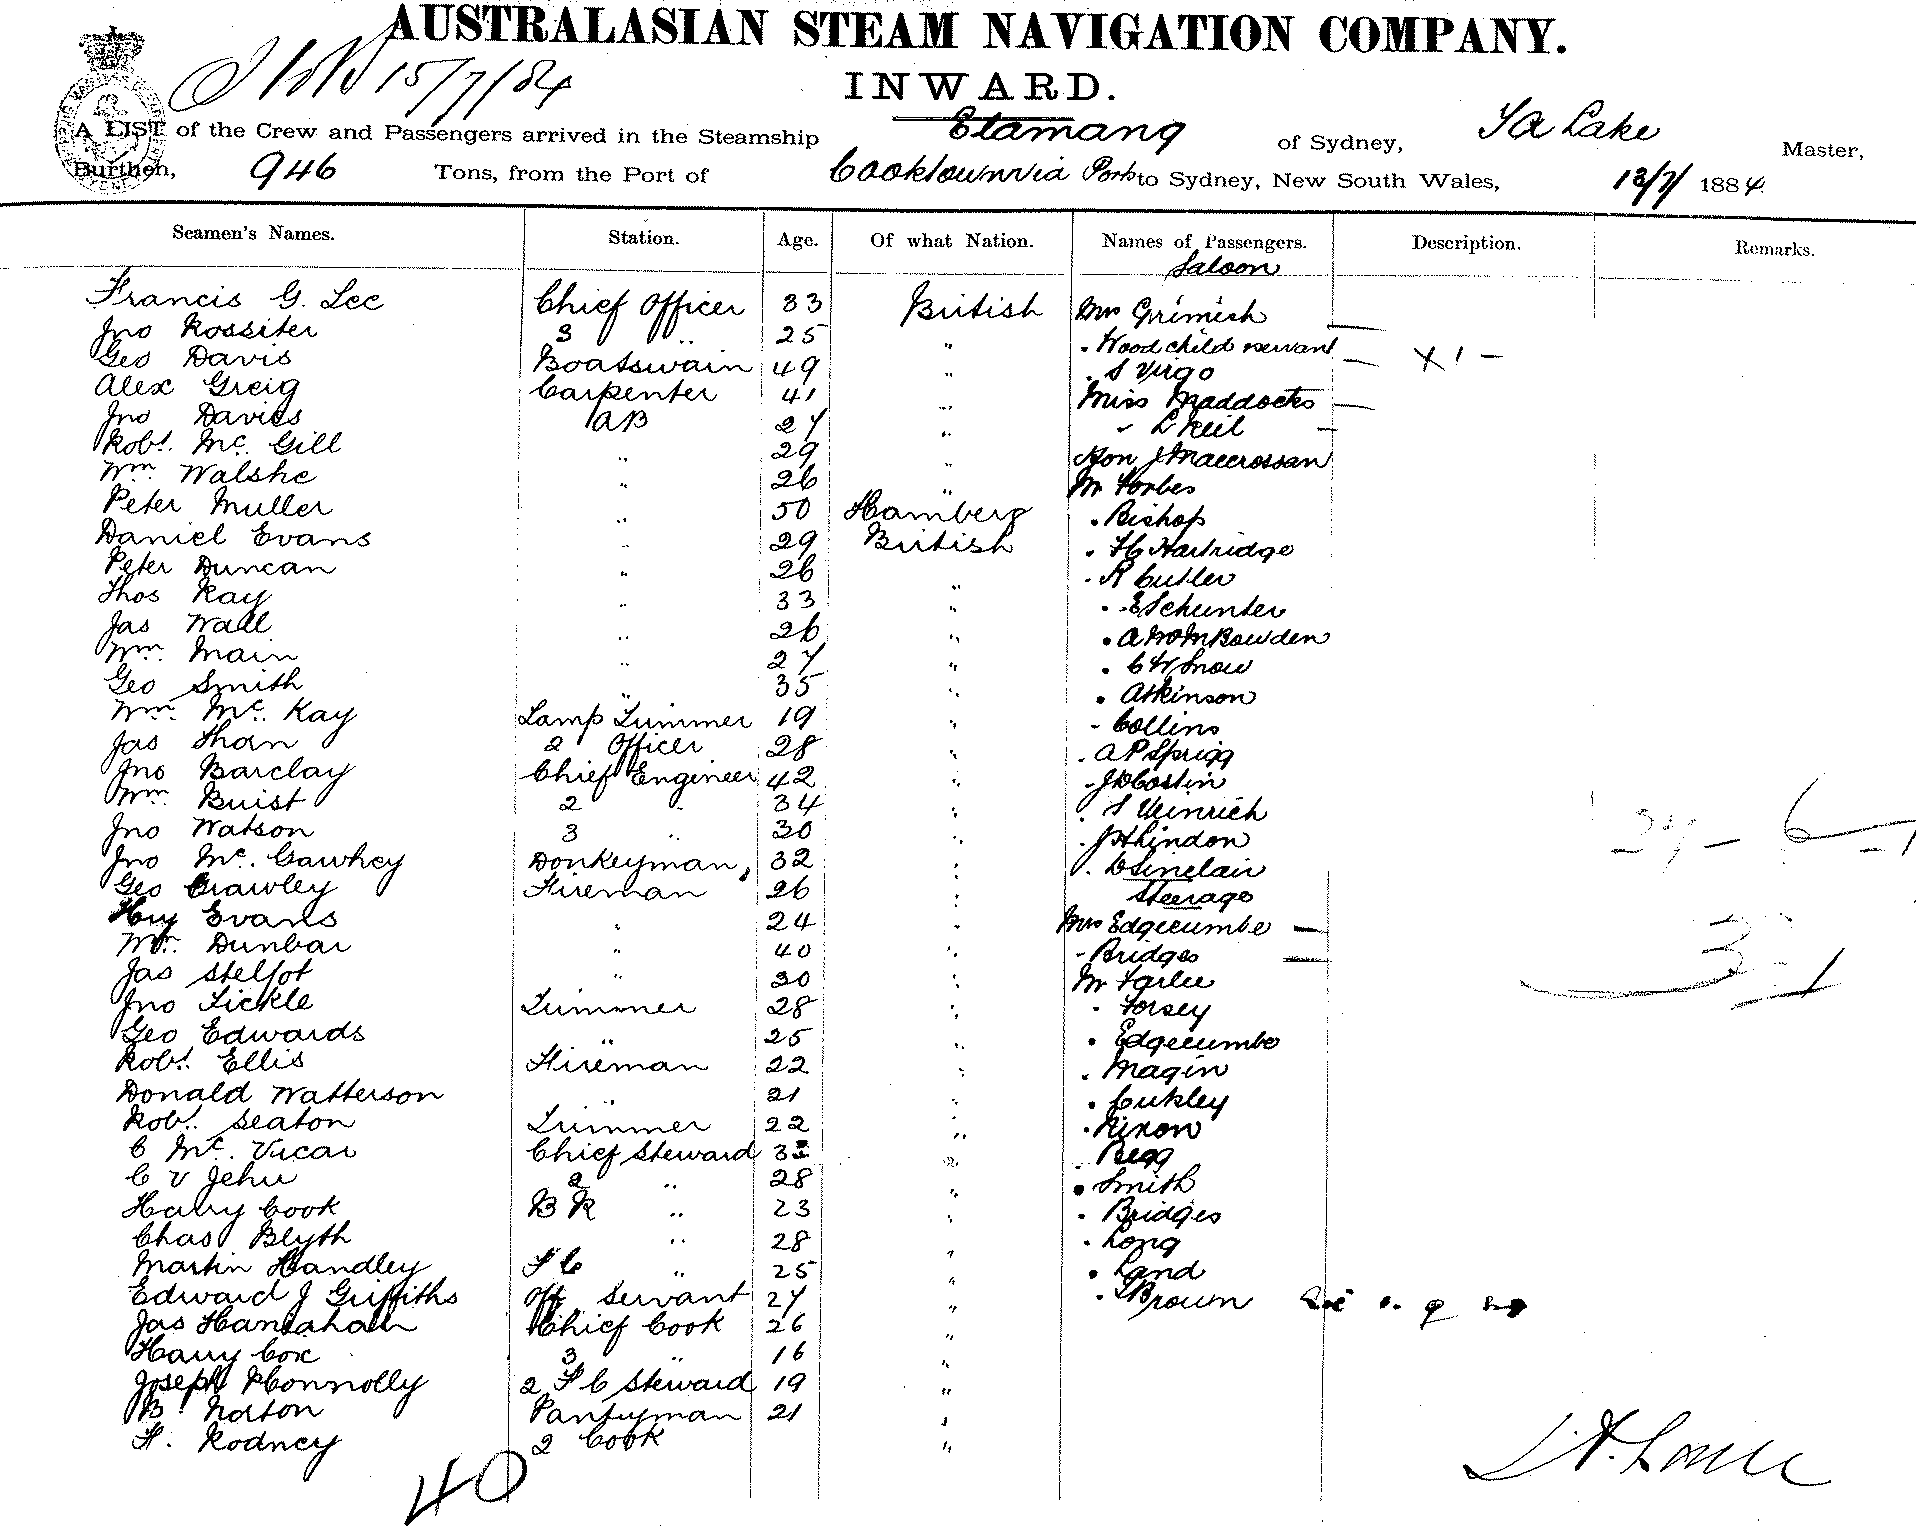 AUSTRALASIAN STEAM NAVIGATION COMPANY.
15/7/84
INWARD.
A LIST of the Crew and Passengers arrived in the Steamship Elamang of Sydney, Lake Master,
Burthen, 946 Tons, from the Port of Cooktown via Ports to Sydney, New South Wales, 13/7/ 1884
Seamen's Names. Station. Age. Of what Nation. Names of Passengers. Description. Remarks.
Saloon
Francis G. Lee Chief Officer 33 British Mrs Grimish
Jno Rossiter 3 " 25 " " Wood child & servant
Geo Davis Boatswain 49 " " S Virgo × 1 –
Alex Greig Carpenter 41 " Miss Maddocks
Jno Davies AB 27 " " L Keil
Robt. Mc. Gill " 29 " Hon J Maccrossan
Wm Walshe " 26 " Mr Forbes
Peter Muller " 50 Hamberg " Bishop
Daniel Evans " 29 British " Hartridge
Peter Duncan " 26 " " R Cutler
Thos Kay " 33 " " E Schunter
Jas Wall " 26 " " Bowden
Wm. Main " 27 " " Snow
Geo Smith " 35 " " Atkinson
Wm. Mc. Kay Lamp Trimmer 19 " " Collins
Jas Shan 2 Officer 28 " " A P Sprigg
Jno Barclay Chief Engineer 42 " " J D Costin
Wm Buist 2 " 34 " " S Weinrich
Jno Watson 3 " 30 " " J H Lindon
Jno Mc. Gawhey Donkeyman 32 " " Sinclair
Geo Crawley Fireman 26 " Steerage
Hry Evans " 24 " Mrs Edgecumbe
Wm. Dunbar " 40 " " Bridges
Jas Stelfot " 30 " Mr Farlie
Jno Tickle Trimmer 28 " " Forsey
Geo Edwards " 25 " " Edgecumbe
Robt. Ellis Fireman 22 " " Magin
Donald Watterson " 21 " " Cukley
Robt. Seaton Trimmer 22 " " Nixon
C Mc. Vicar Chief Steward " " Begg
C V Jehu 2 " 28 " " Smith
Harry Cook B R " 23 " " Bridges
Chas Blyth " 28 " " Long
Martin Handley F C " 25 " " Land
Edward J Griffiths Off Servant 27 " " Brown
Jas Hanrahan Chief Cook 26 "
Harry Cox 3 " 16 "
Joseph Connolly 2 F C Steward 19 "
B Norton Pantryman 21 "
F. Rodney 2 Cook "
40